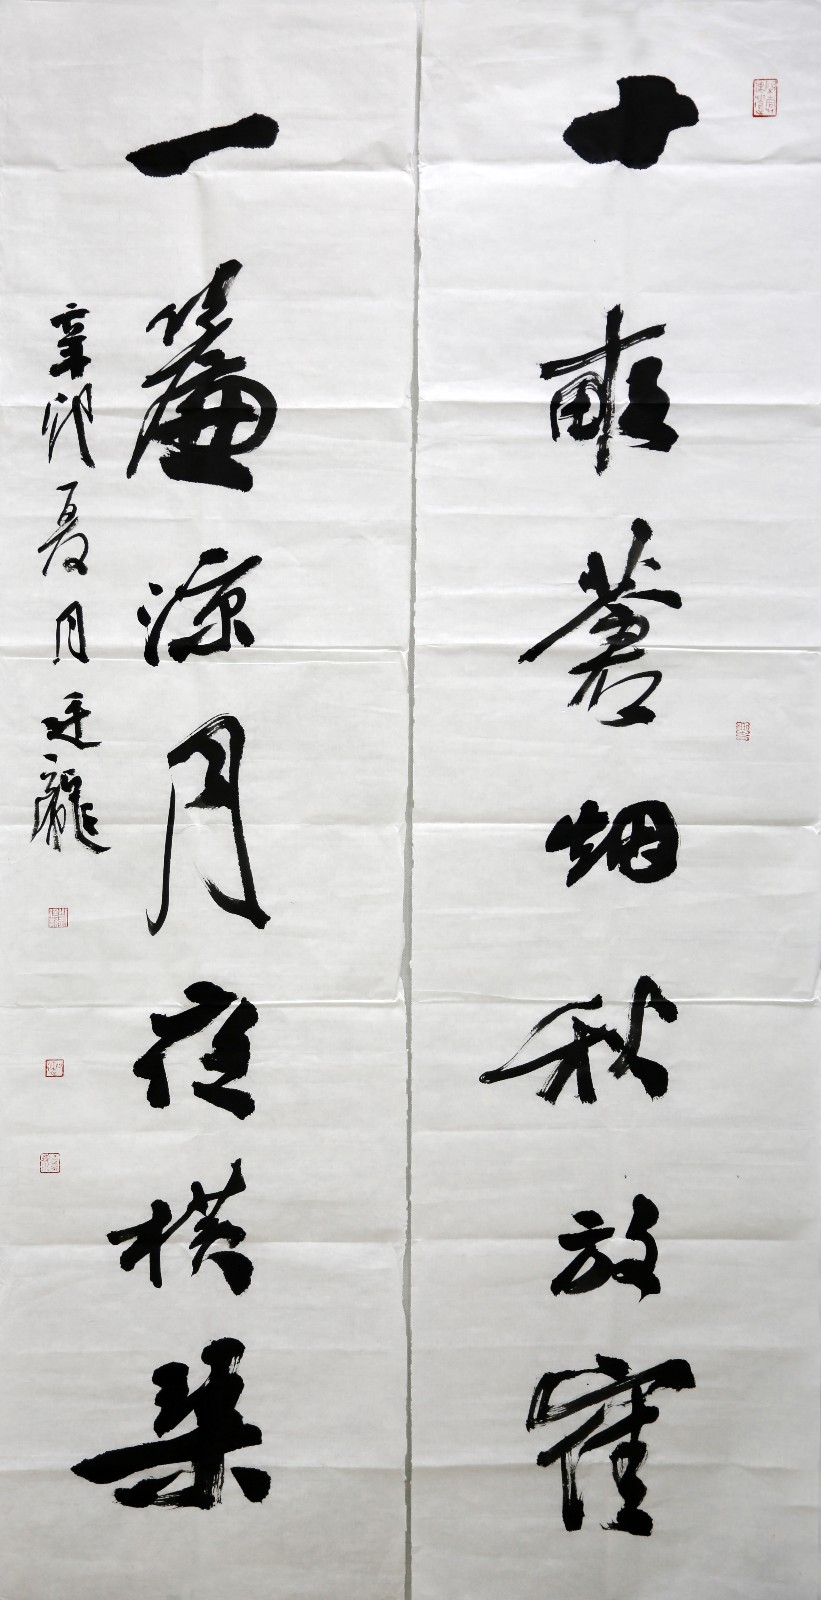 十畝蒼烟秋放寉
一簾涼月夜横琹
辛卯夏月廷龍